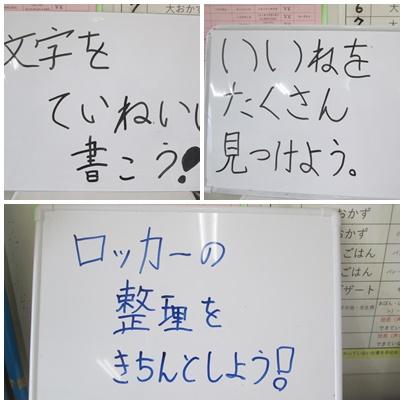 文字を
ていねいに
書こう!
いいねを
たくさん
見つけよう。
ロッカーの
整理を
きちんとしよう!
大おかず
6
7
大
おかず
おかず
ごはん
ごはん
デザート